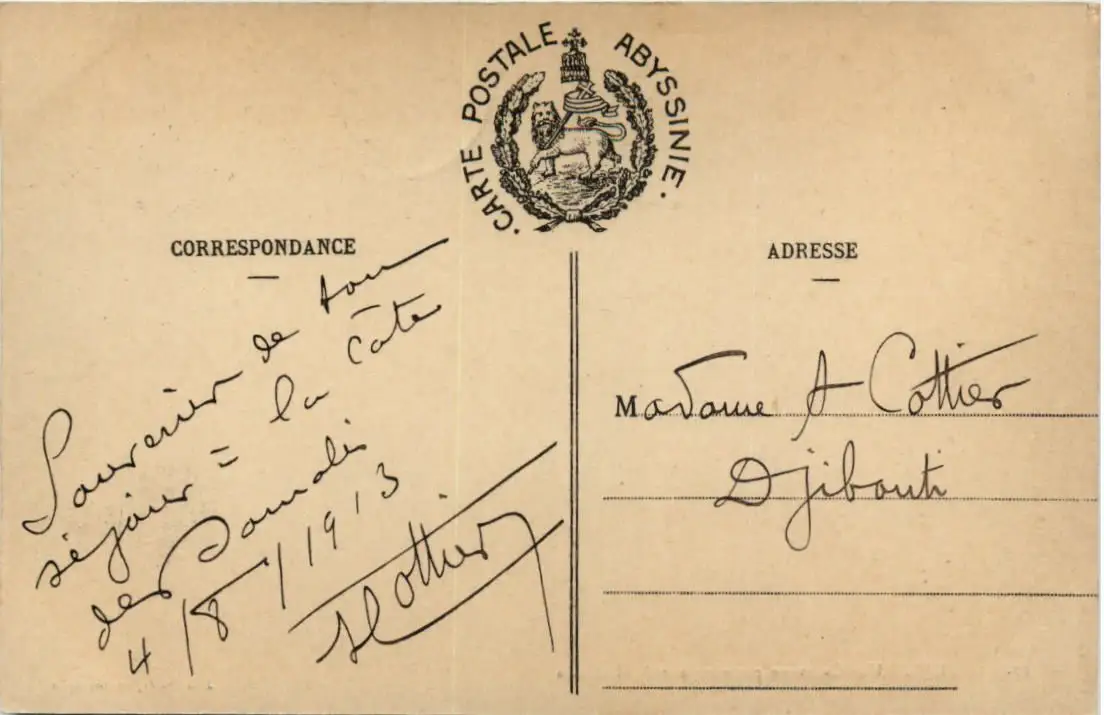 CARTE POSTALE ABYSSINIE.
CORRESPONDANCE
Souvenir de ton
séjour = la Côte
des Somalis
4/8/1913
ACottier
ADRESSE
Madame A Cottier
Djibouti